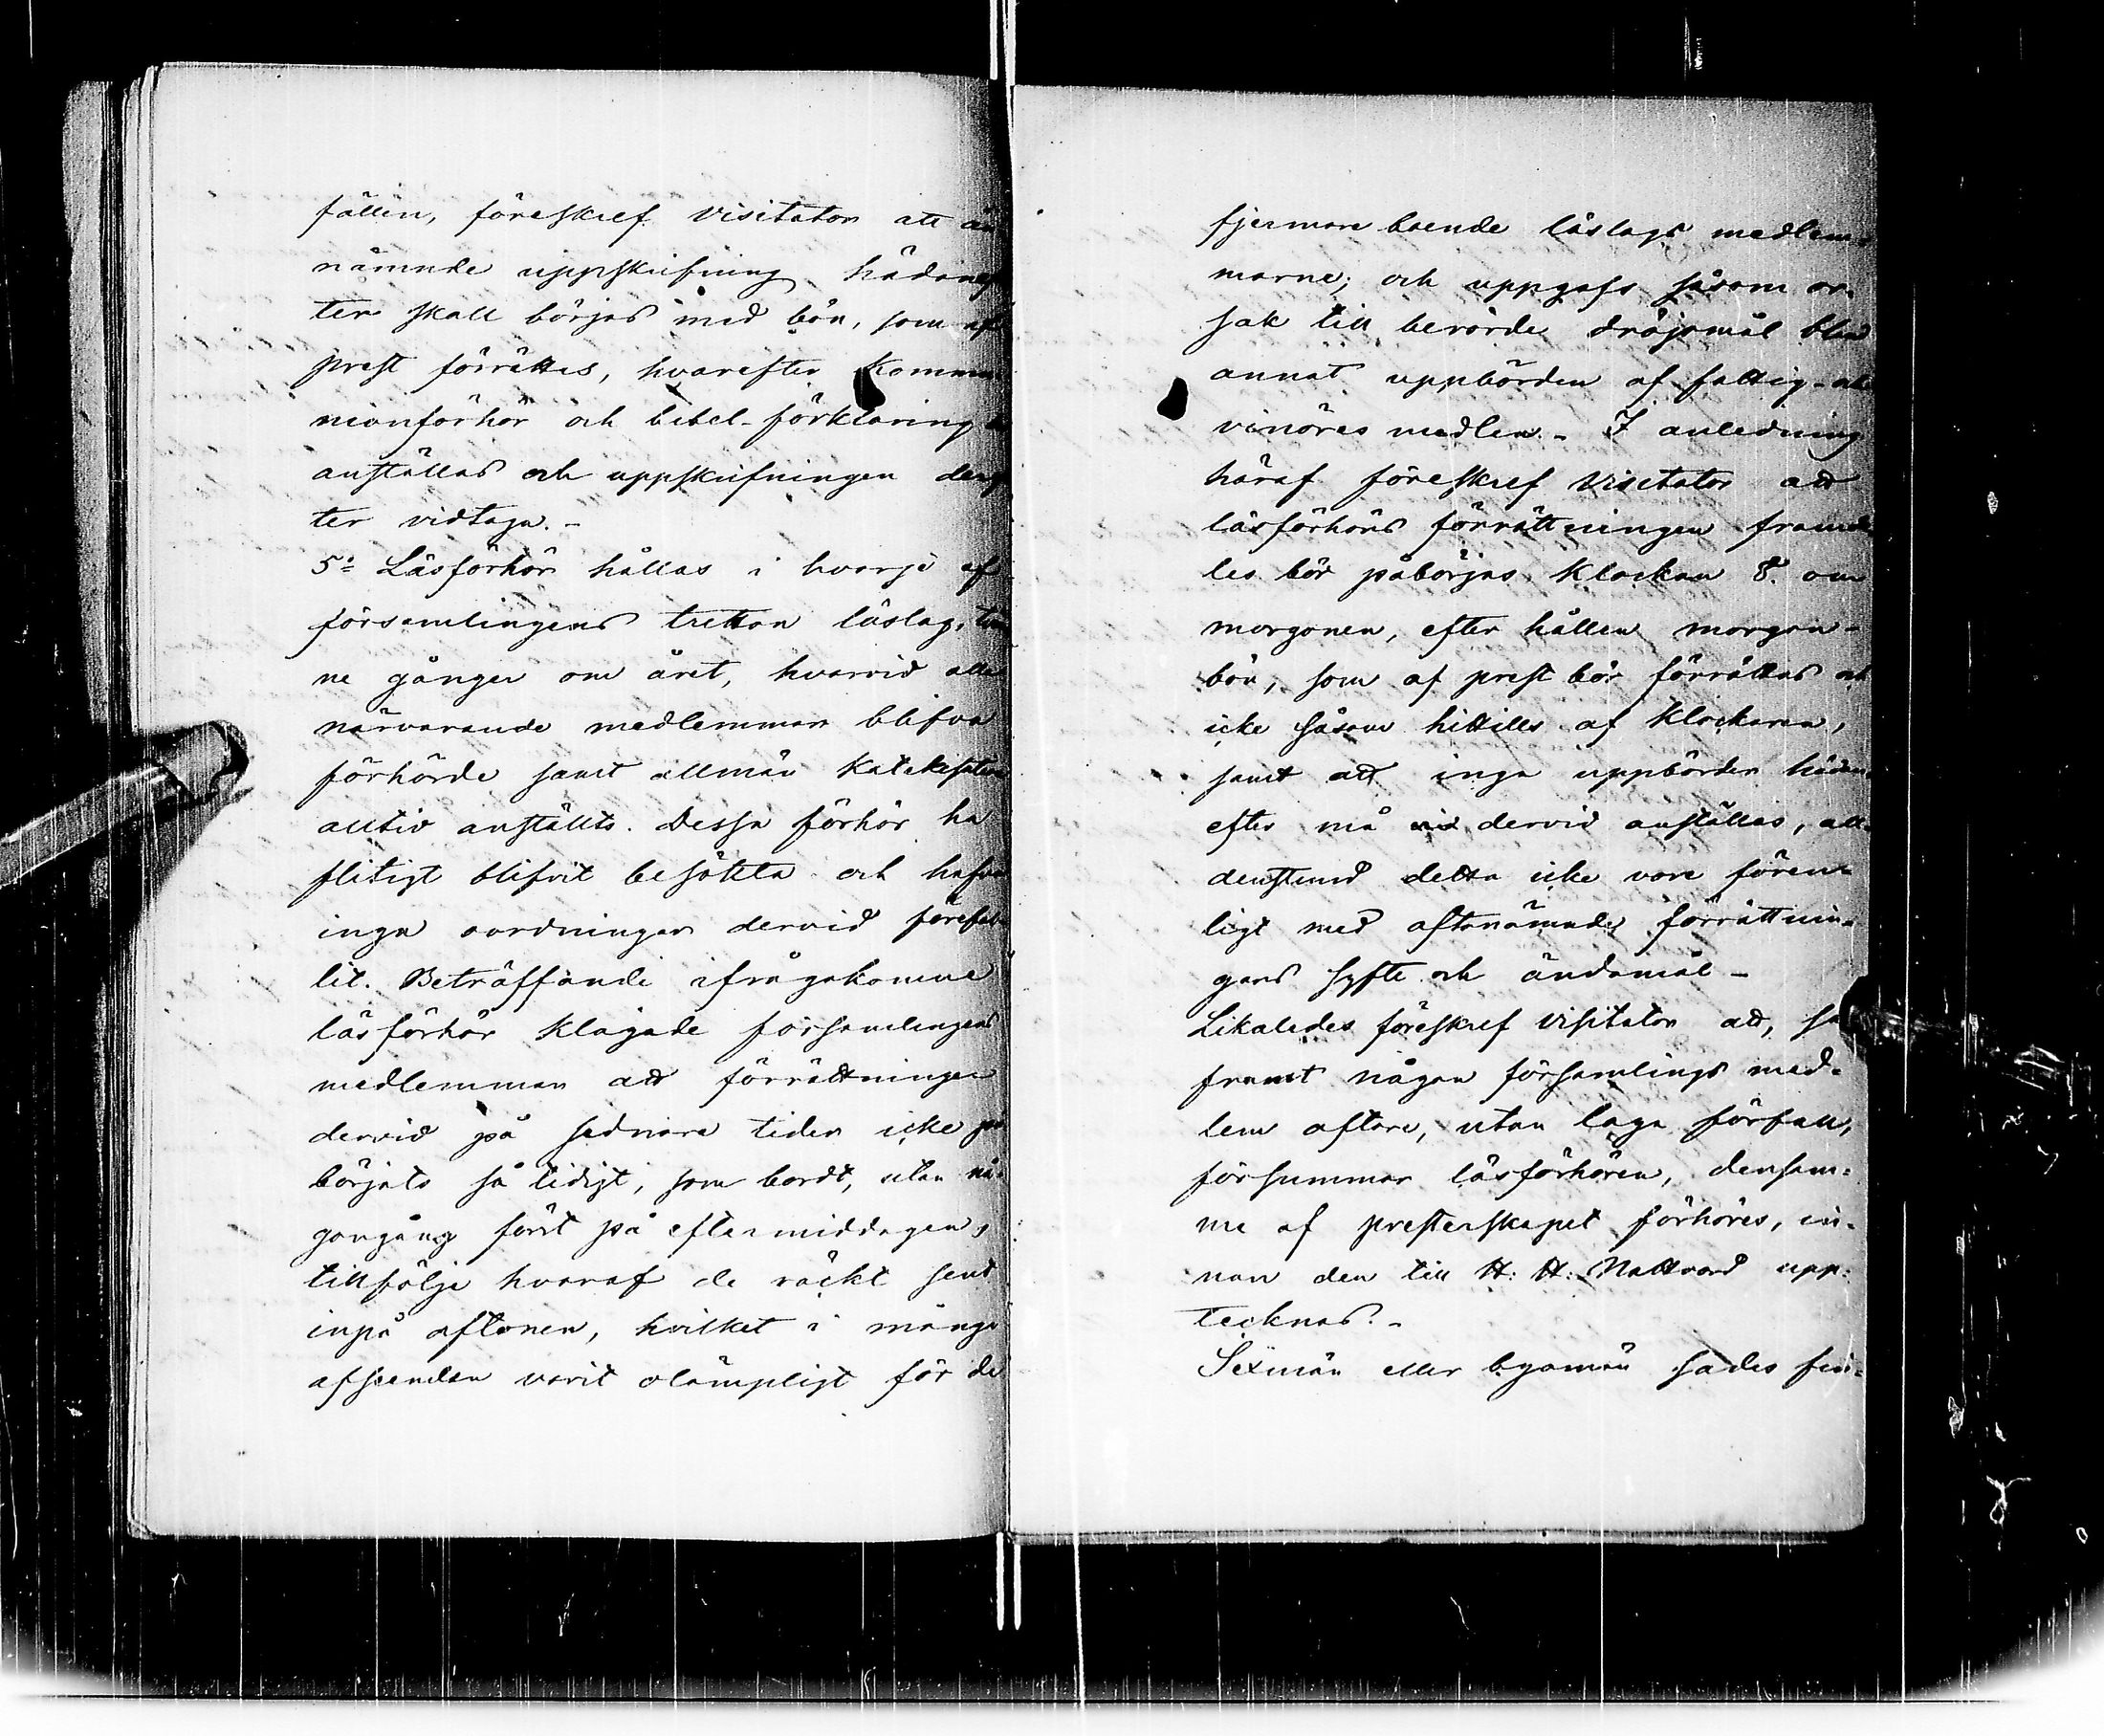 fällen, föreskref Visitator att än
nämnde uppskrifning hädanef
ter skall börjas med bön, som af
prest förrättes, hvarefter Kommu
nionförhör och bibel-förklaring
anställas och uppskrifningen deref
ter vidtaga. –
5:o Läsförhör hållas i hvarje af
församlingens tretton läslag, ten
ne gånger om året, hvarvid alla
närvarande medlemmar blifva
förhörde samt allmän Katekisation
alltid anställts. Dessa förhör ha
flitigt blifvit besökta och hafva
inga oordningar dervid förefal
lit. Beträffande ifrågakomne
läsförhör klagade församlingens
medlemmar att förrättningen
dervid på sednare tider icke på
börjats så tidigt, som bordt, utan nå-
gongång först på eftermiddagen,
tillfölje hvaraf de räckt sent
inpå aftonen, hvilket i många
afseenden varit olämpligt för de
fjermare boende läslags medlem-
marne; och uppgafs såsom or-
sak till berörde dröjsmål bland
annat uppbörden af fattig- och
medlen. – I anledning
häraf föreskref Visitator att
läsförhörs förrättningen framde
les bör påbörjas Klockan 8. om
morgonen, efter hållen morgon-
bön, som af prest bör förrättas och
icke såsom hittills af Klockaren,
samt att inga uppbörder hädan
efter må dervid anställas, all-
denstund detta icke vore fören-
ligt med oftanämnde förrättnin-
gars syfte och ändamål –
Likaledes föreskref Visitator att, så
framt någon församlings med-
lem oftare, utan laga förfall,
försummar läsförhören, densam-
me af presterskapet förhöres, in-
nan den till H: H: Nattvard upp-
tecknas. –
Sexmän eller byamän sades fin-